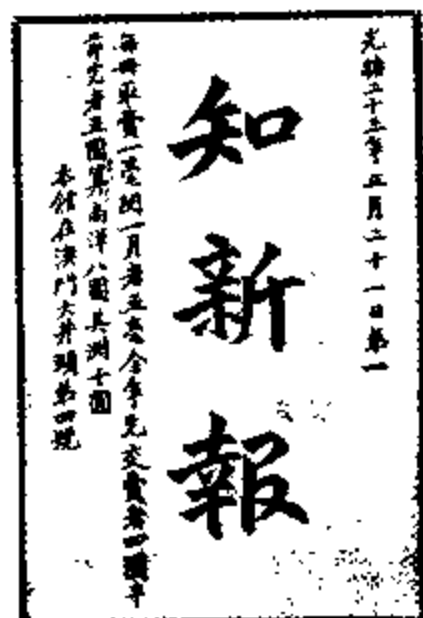 光緒二十三年正月二十一日第一
知新報
每冊取費一毫閱一月者五毫全年先交費者四圓半
年完者五圓算南洋八圓美洲十圓
本館在澳門大井頭第四號